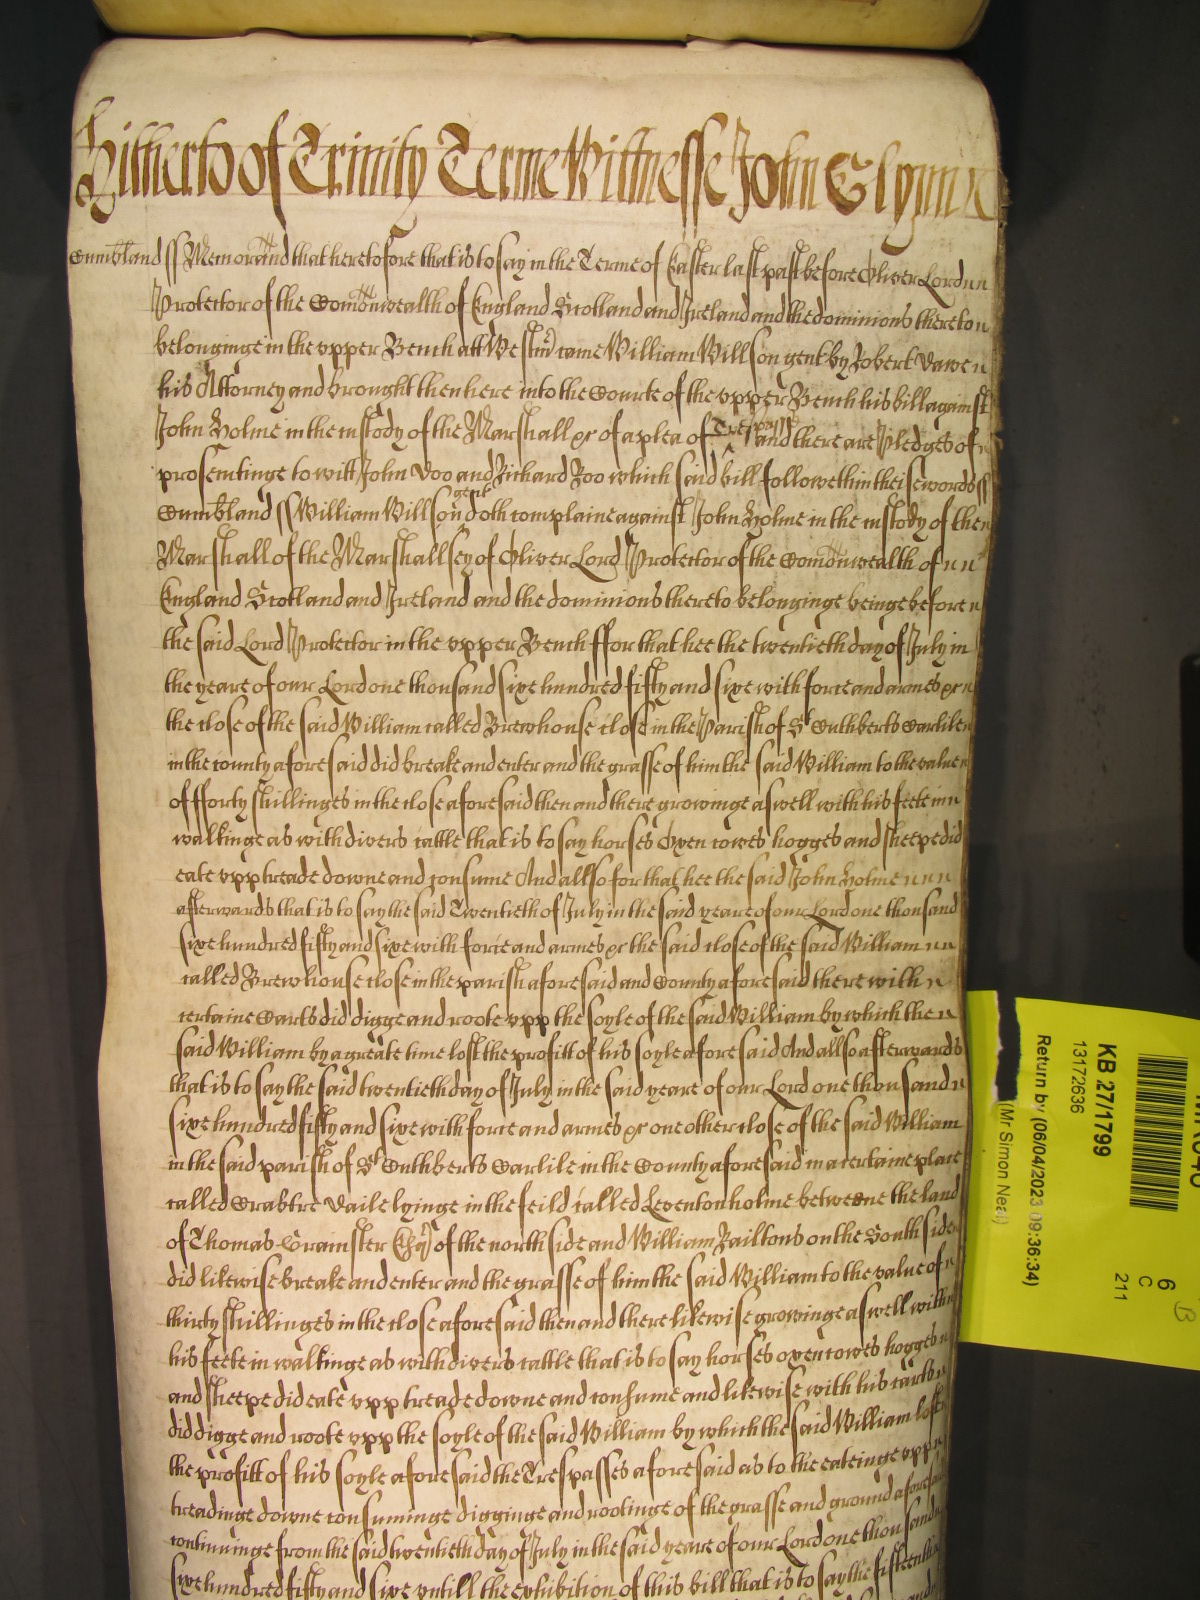 Hitherto of Trinity Terme Wittnesse John Glynn
Cumbland ss Memorand that heretofore that is to say in the Terme of Easter last past before Oliver Lord
Protector of the Comonwealth of England Scotland and Ireland and the dominions thereto
belonginge in the upper Bench att Westm came William Willson gent by Robert Dawe
his Attorney and brought then here into the Courte of the upper Bench his bill against
John Holme in the custody of the Marshall &c of a plea of Trespasse and there are Pledges of
prosecutinge to witt John Doo and Richard Roo which said bill followeth in theise words ss
Cumbland ss William Willson gent doth complaine against John Holme in the custody of the
Marshall of the Marshallsey of Oliver Lord Protector of the Comonwealth of
England Scotland and Ireland and the dominions thereto belonginge beinge before
the said Lord Protector in the upper Bench ffor that hee the twentieth day of July in
the yeare of our Lord one thousand sixe hundred fifty and sixe with force and armes &c
the close of the said William called Brewhouse close in the Parish of St Cuthberts Carlile
in the county aforesaid did breake and enter and the grasse of him the said William to the value
of fforty shillinges in the close aforesaid then and there growinge aswell with his feete in
walkinge as with divers cattle that is to say horses Oxen cowes hogges and sheepe did
eate upp treade downe and consume And allso for that hee the said John Holme
afterwards that is to say the said Twentieth of July in the said yeare of our Lord one thousand
sixe hundred fifty and sixe with force and armes &c the said close of the said William
called Brewhouse close in the parish aforesaid and County aforesaid there with
certaine Carts did digge and roote upp the soyle of the said William by which the
said William by a greate time lost the profitt of his soyle aforesaid And allso afterwards
that is to say the said twentieth day of July in the said yeare of our Lord one thousand
sixe hundred fifty and sixe with force and armes &c one other close of the said William
in the said parish of St Cuthberts Carlile in the County aforesaid in a certaine place
called Crabtre Daile lyinge in the feild called Leventonholme betweene the land
of Thomas Crainster Esq of the north side and William Railtons on the South side
did likewise breake and enter and the grasse of him the said William to the value of
thirty shillinges in the close aforesaid then and there likewise growinge aswell with
his feete in walkinge as with divers cattle that is to say horses oxen cowes hogges
and sheepe did eate upp treade downe and consume and likewise with his carts
did digge and roote upp the soyle of the said William by which the said William lost
the profitt of his soyle aforesaid the Trespasses aforesaid as to the eateinge upp
treadinge downe consuminge digginge and rootinge of the grasse and ground aforesaid
continuinge from the said twentieth day of July in the said yeare of our Lord one thousand
sixe hundred fifty and sixe untill the exhibition of this bill that is to say the fifteenth
KB 27/1799
13172636
Return by (06/04/2023 09:36:34)
(Mr Simon Neal)
6
C
211
B